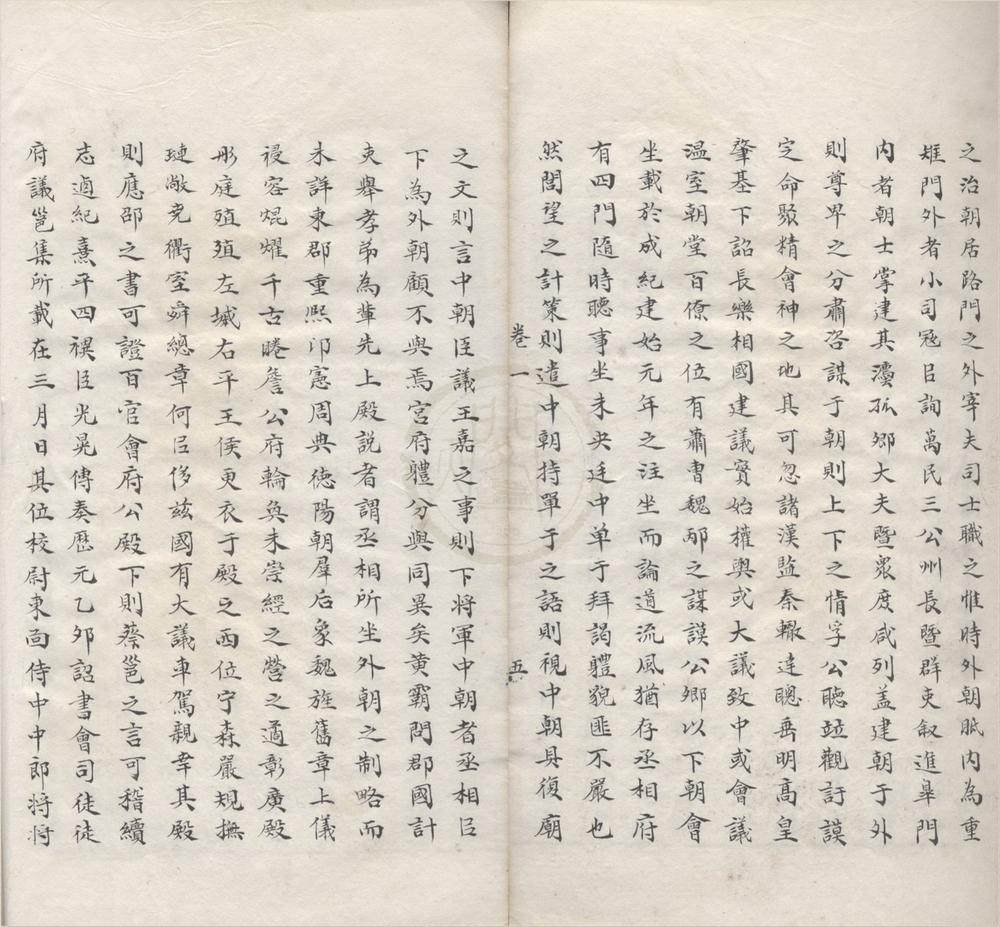 之治朝居路門之外宰夫司士職之惟時外朝眡内為重
雉門外者小司冦㠯詢萬民三公州長暨群吏叙進皐門
内者朝士掌建其灋孤卿大夫暨衆庻咸列盖建朝于外
則尊卑之分肅咨謀于朝則上下之情孚公聽竝觀訏謨
定命聚精會神之地其可忽諸漢監秦轍達聰垂明髙皇
肇基下詔長樂相國建議實始權輿或大議致中或會議
温室朝堂百僚之位有蕭曹魏邴之謀謨公卿以下朝會
坐載於成紀建始元年之注坐而論道流風猶存丞相府
有四門隨時聽事坐未央廷中单于拜謁軆貌匪不嚴也
然閎望之計策則遣中朝持單于之語則視中朝具復廟
卷一
五
之文則言中朝臣議王嘉之事則下将軍中朝者丞相㠯
下為外朝顧不與焉宫府軆分興同異矣黄霸問郡國計
吏舉孝弟為軰先上殿説者謂丞相所坐外朝之制略而
未詳東郡重熈卭憲周典徳陽朝羣后象魏旌舊章上儀
祲容焜耀千古睠詹公府輪奐未崇經之營之適彰廣殿
彤庭殖殖左墄右平王侯更衣于殿之西位宁森嚴規撫
璉敞尭衢室舜緫章何㠯侈兹國有大議車駕親幸其殿
則應邵之書可證百官會府公殿下則蔡邕之言可稽續
志逌紀熹平四禩臣光晃傳奏歴元乙夘詔書會司徒徒
府議邕集所載在三月日其位校尉東靣侍中中郎将将